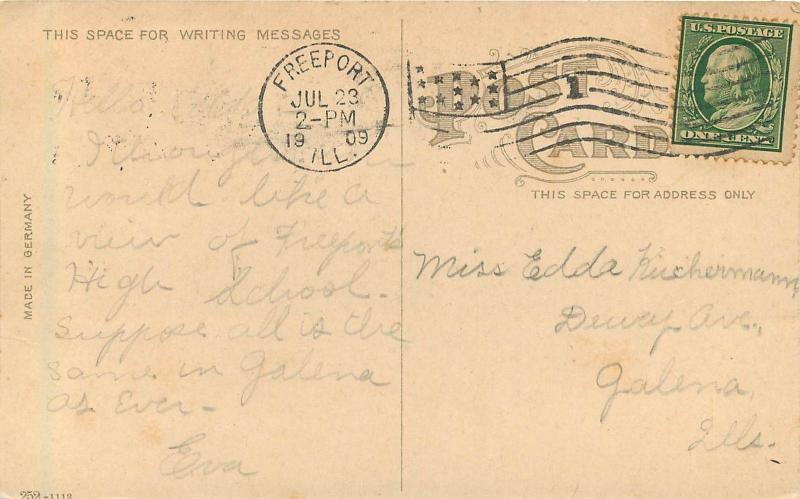 THIS SPACE FOR WRITING MESSAGES
Hello Edda
I thought you
would like a
view of Freeports
High School.
Suppose all is the
same in Galena
as Ever-
Eva
MADE IN GERMANY
252-1113
FREEPORT
JUL 23
2-PM
19 09
ILL.
1
POST CARD
THIS SPACE FOR ADDRESS ONLY
U.S. POSTAGE
ONE CENT
Miss Edda Kuchermann,
Dewey Ave.,
Galena,
Ills.